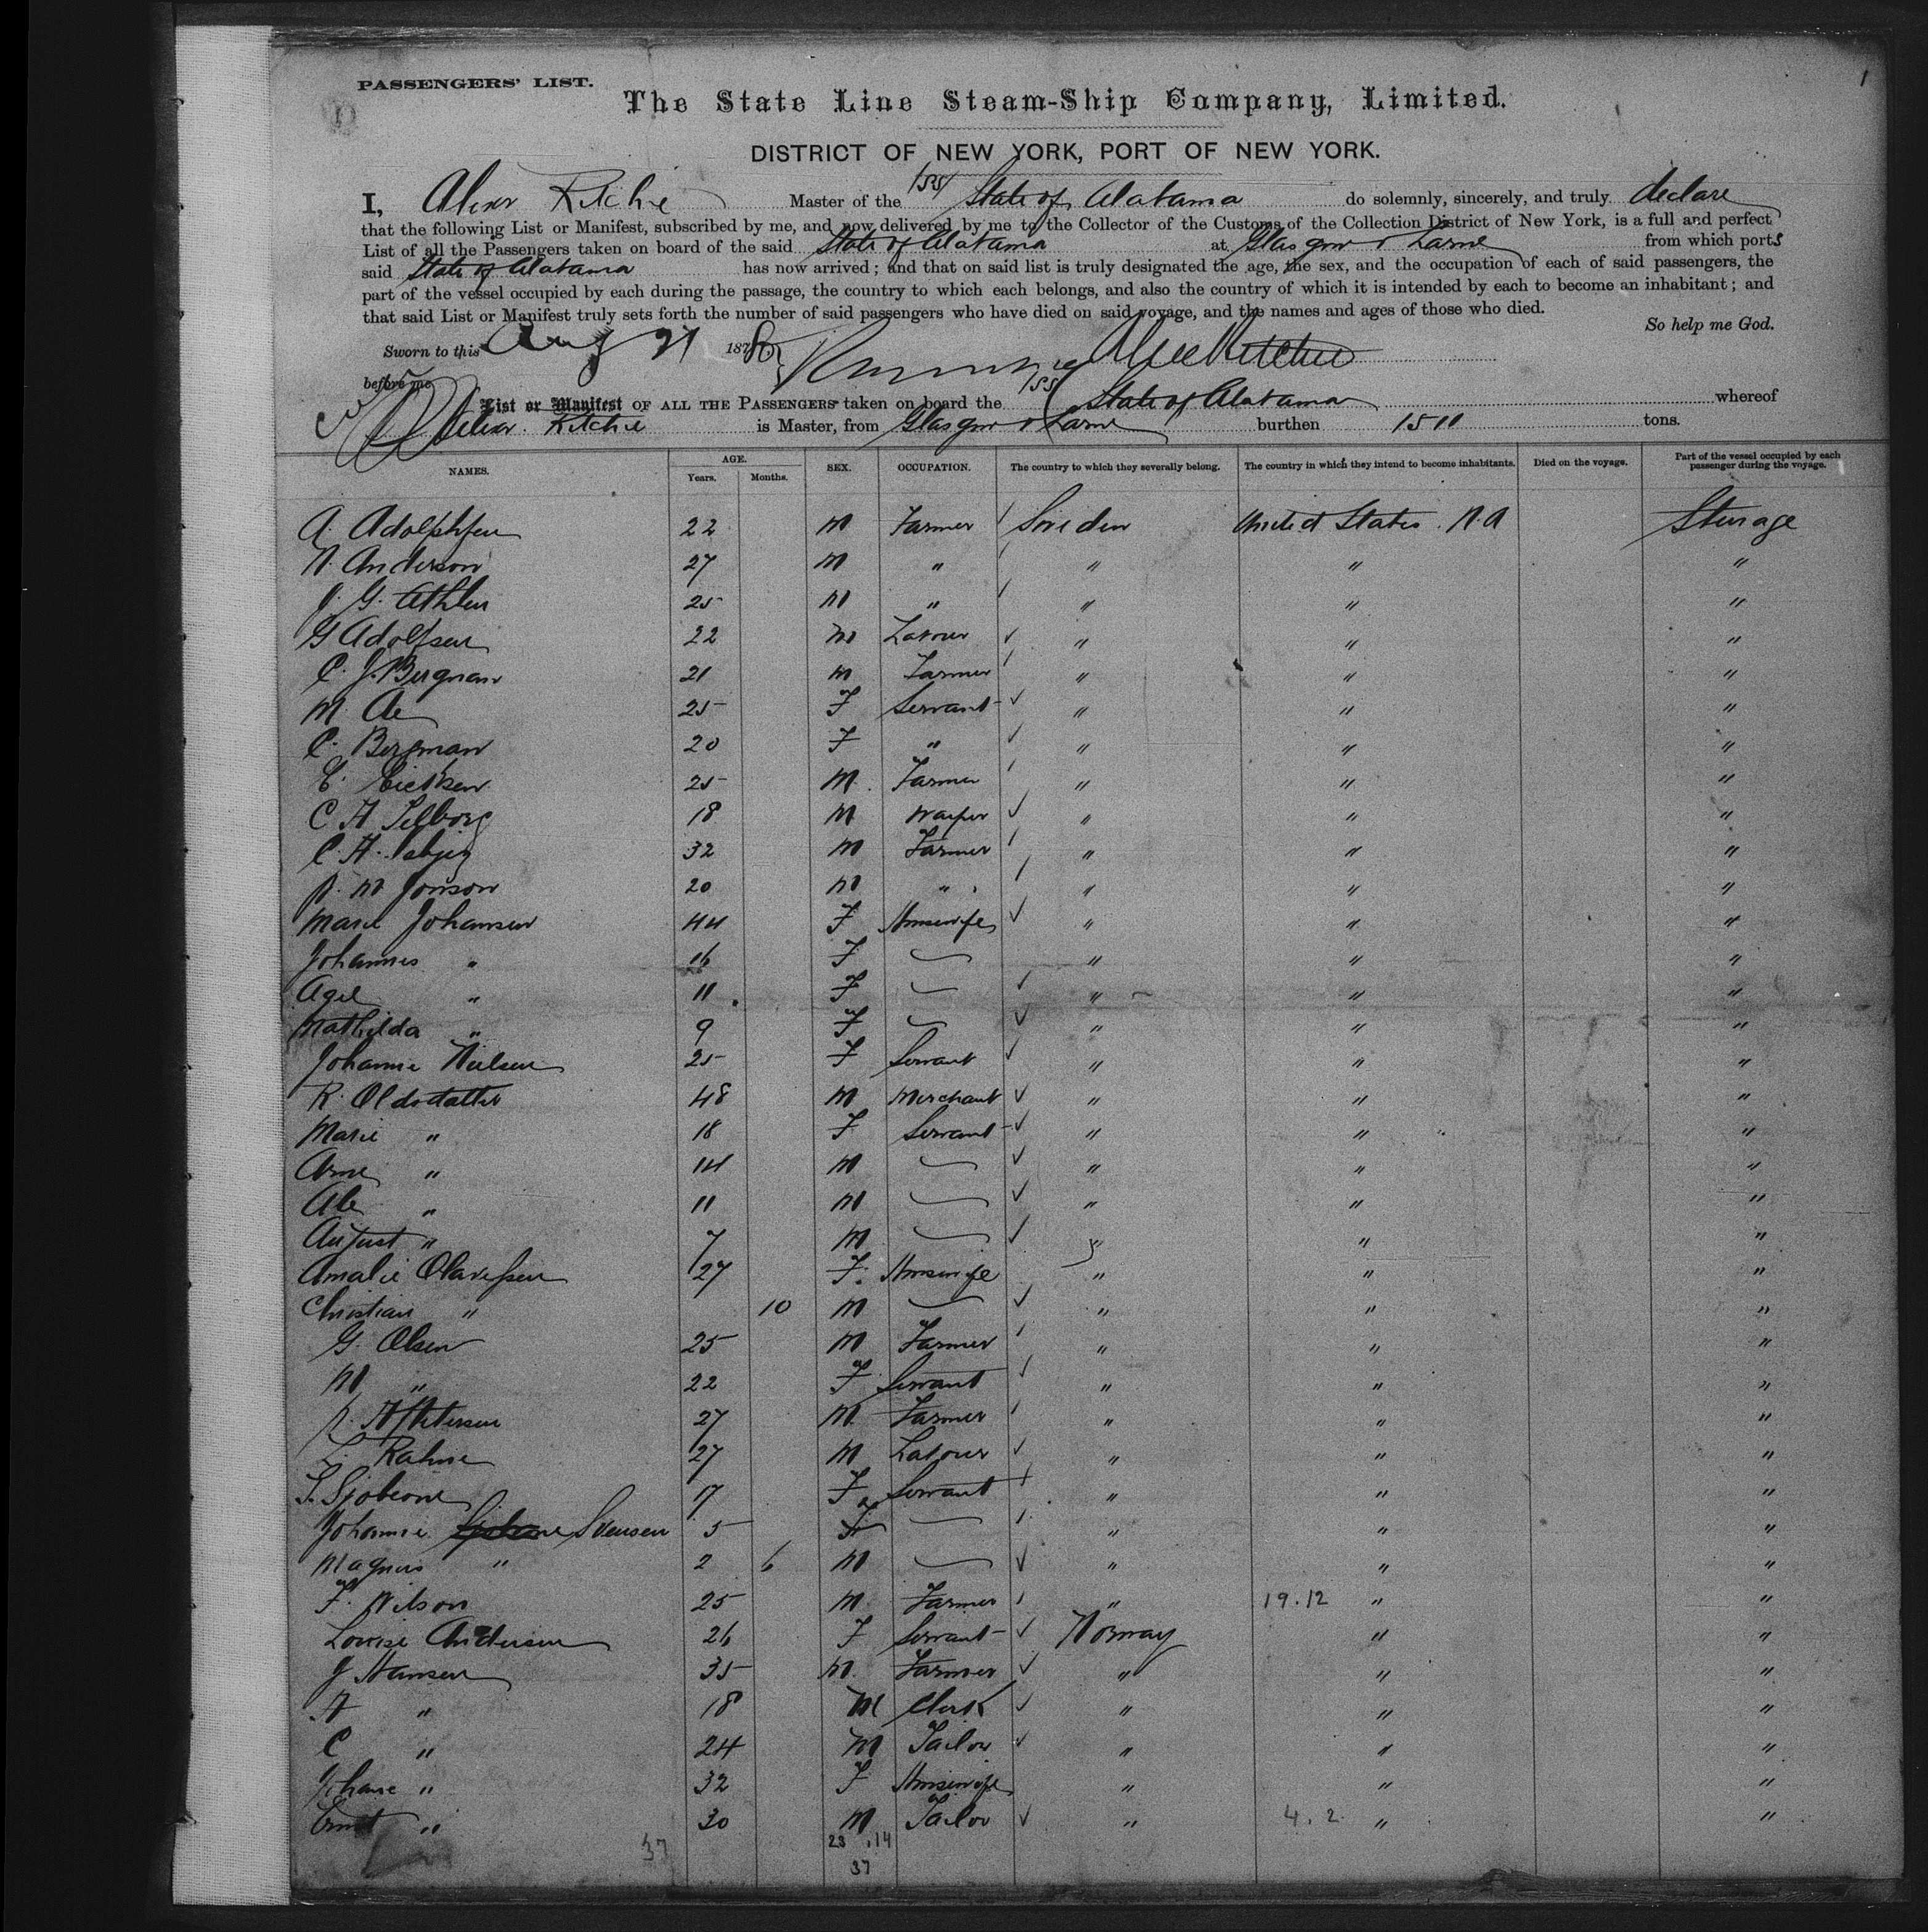 1
PASSENGERS' LIST.
The State Line Steam-Ship Company, Limited.
DISTRICT OF NEW YORK, PORT OF NEW YORK.
I, Alexr Ritchie Master of the SS State of Alabama do solemnly, sincerely, and truly declare
that the following List or Manifest, subscribed by me, and now delivered by me to the Collector of the Customs of the Collection District of New York, is a full and perfect
List of all the Passengers taken on board of the said State of Alabama at Glasgow & Larne from which ports
said State of Alabama has now arrived; and that on said list is truly designated the age, the sex, and the occupation of each of said passengers, the
part of the vessel occupied by each during the passage, the country to which each belongs, and also the country of which it is intended by each to become an inhabitant; and
that said List or Manifest truly sets forth the number of said passengers who have died on said voyage, and the names and ages of those who died.
So help me God.
Sworn to this Aug 21 187 Alex Ritchie
before me
List or Manifest OF ALL THE PASSENGERS taken on board the SS State of Alabama whereof
Alexr. Ritchie is Master, from Glasgow & Larne burthen 1510 tons.
NAMES. AGE. Years. Months. SEX. OCCUPATION. The country to which they severally belong. The country in which they intend to become inhabitants. Died on the voyage. Part of the vessel occupied by each passenger during the voyage.
A. Adolphsen 22 M Farmer Sweden United States N.A Sterage
N. Anderson 27 M " " " "
J. G. Athlen 25 M " " " "
G Adolfsen 22 M Labour " " "
C. J. Bergman 21 M Farmer " " "
M. Ae 25 F Servant " " "
C. Bergman 20 F " " " "
E. 25 M. Farmer " " "
C A 18 M " " "
C. A. 32 M Farmer " " "
M Jonson 20 M " " " "
Marie Johansen 44 F Housewife " " "
Johannes " 16 F " " "
Agel " 11 F " " "
Mathilda " 9 F " " "
Johanne Nielsen 25 F Servant " " "
R. Oldstatter 48 M Merchant " " "
Marie " 18 F Servant " " "
Arne " 14 M " " "
Ale " 11 M " " "
August " 7 M " " "
Amalie Olavessen 27 F. Housewife " " "
Christian " 10 M " " "
G. Olsen 25 M Farmer " " "
M " 22 F Servant " " "
A Petersen 27 M. Farmer " " "
Rahne 27 M Labour " " "
17 F Servant " " "
Johanne Svensen 5 F " " "
Magnus " 2 6 M " " "
F. Nilson 25 M. Farmer " 19.12 " "
Lovise Andersen 26 F Servant Norway " "
J Hansen 35 M. Farmer " " "
A " 18 M Clerk " " "
C " 24 M Tailor " " "
Johane " 32 F Housewife " " "
Ernst " 30 M Tailor " 4.2. " "
37 23 . 14
37